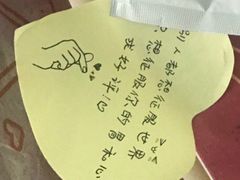 别人都想征服世界
只想征服你的胃和心
求好评